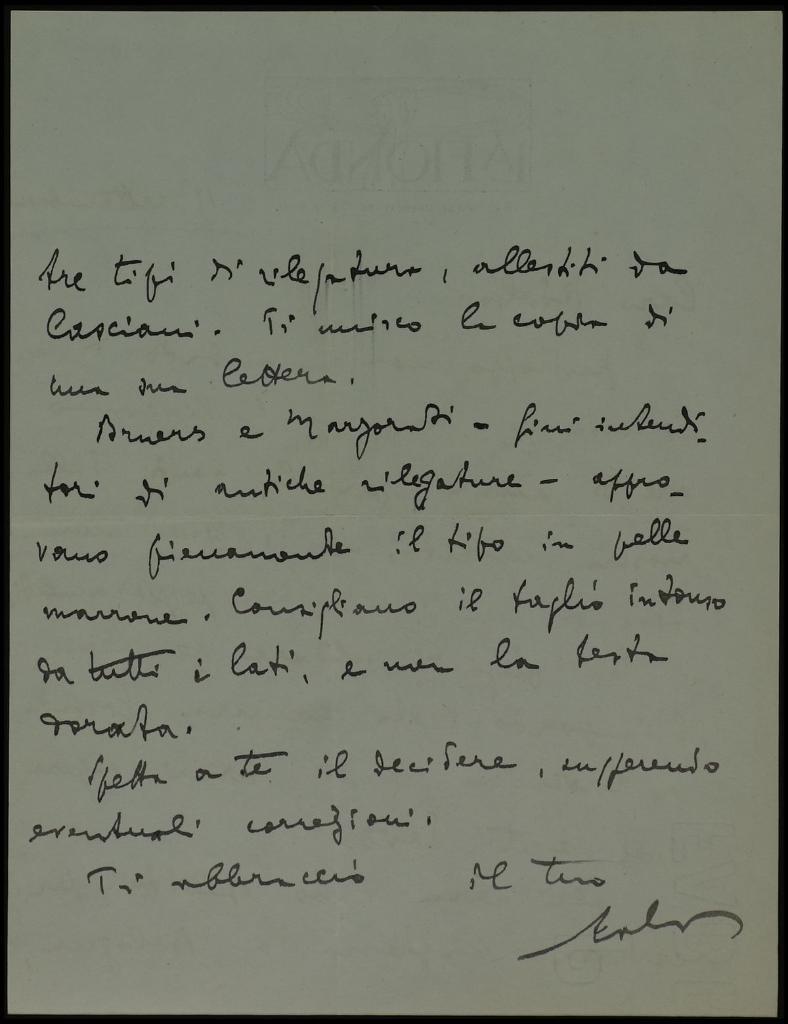 LA FIONDA
tre tipi di rilegatura, allestiti da
Casciani. Ti unisco la copia di
una sua lettera.
Bruers e Marzorati - fini intendi-
tori di antiche rilegature - appro-
vano pienamente il tipo in pelle
marrone. Consigliano il taglio intonso
da tutti i lati, e non la testa
dorata.
Spetta a te il decidere, suggerendo
eventuali correzioni.
Ti abbraccio il tuo